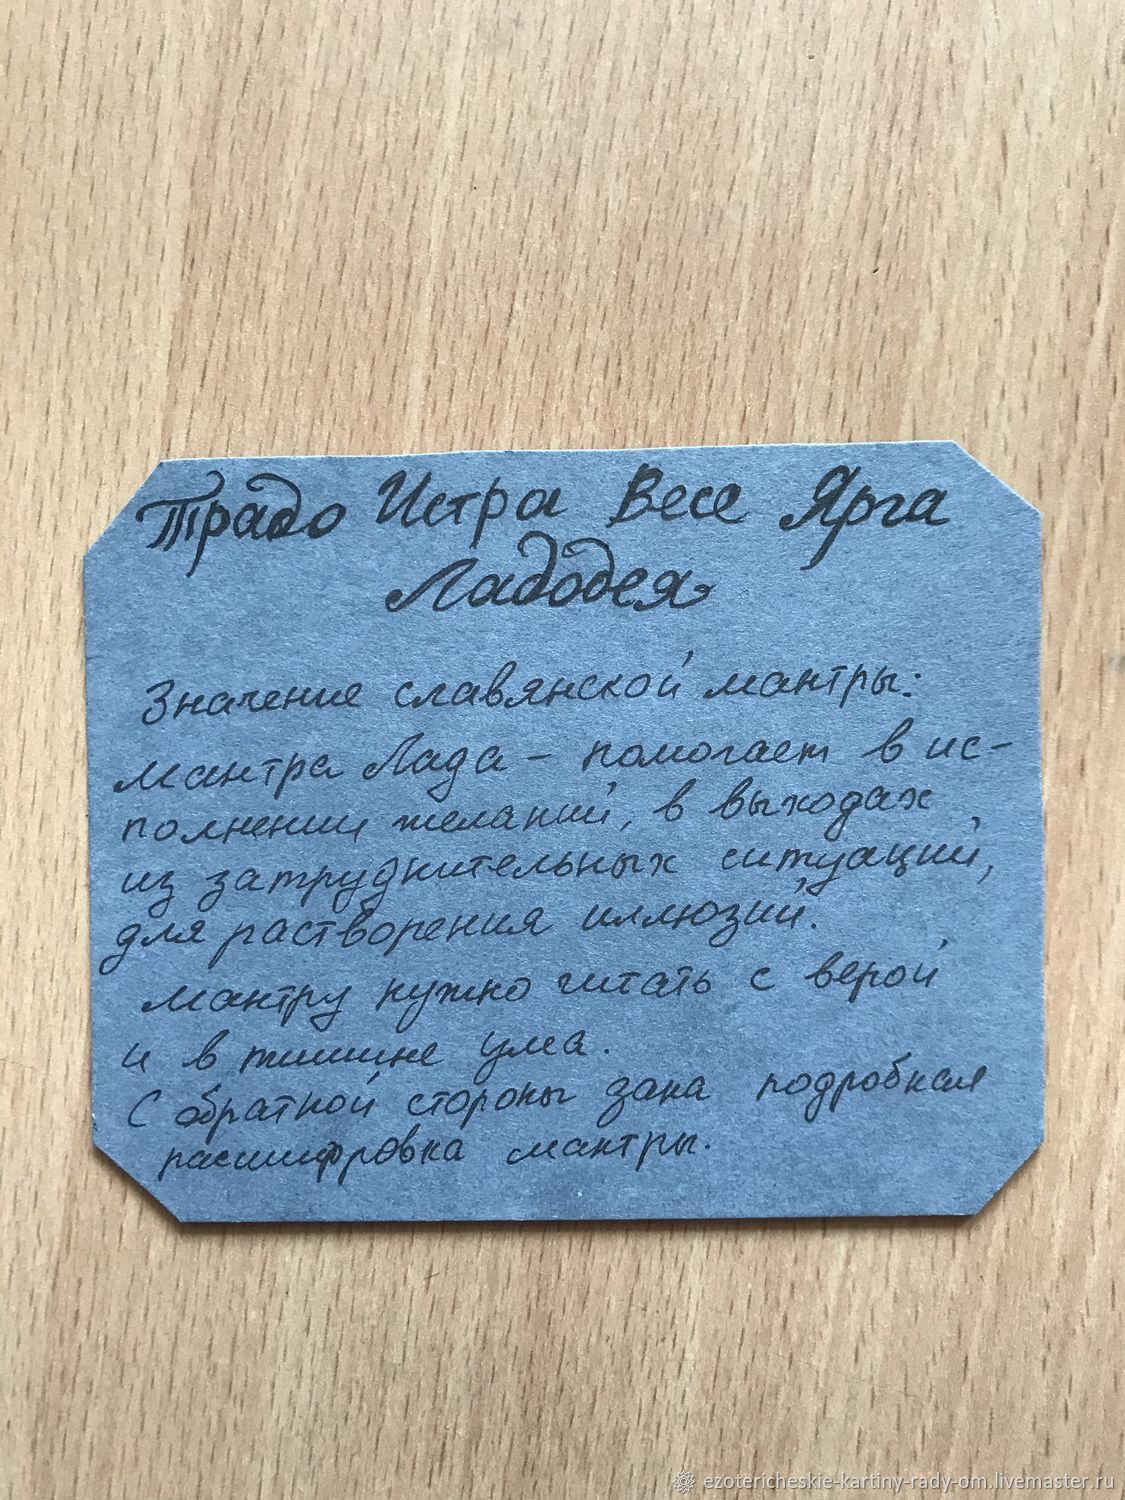 Традо Истра Весе Ярга
Ладодея
Значение славянской мантры:
мантра Лада – помогает в ис-
полнении желаний, в выходах
из затруднительных ситуаций,
для растворения иллюзий.
Мантру нужно читать с верой
и в тишине ума.
С обратной стороны дана подробная
расшифровка мантры.
ezotericheskie-kartiny-rady-om.livemaster.ru